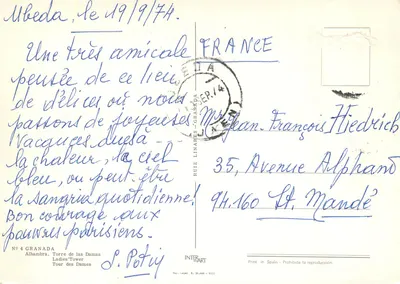 Ubeda, le 19/9/74.
Une très amicale
pensée de ce lieu
de délices où nous
passons de joyeuses
vacances, dues à
la chaleur, le ciel
bleu, ou peut-être
la sangria quotidienne!
Bon courage aux
pauvres parisiens.
FRANCE
Jean-François Hedrich
35, Avenue Alphand
94.160 St. Mandé
SEP. 74
(JAEN)
Nº 6 GRANADA
Alhambra. Torre de las Damas
Ladies' Tower
Tour des Dames
INTER
ART